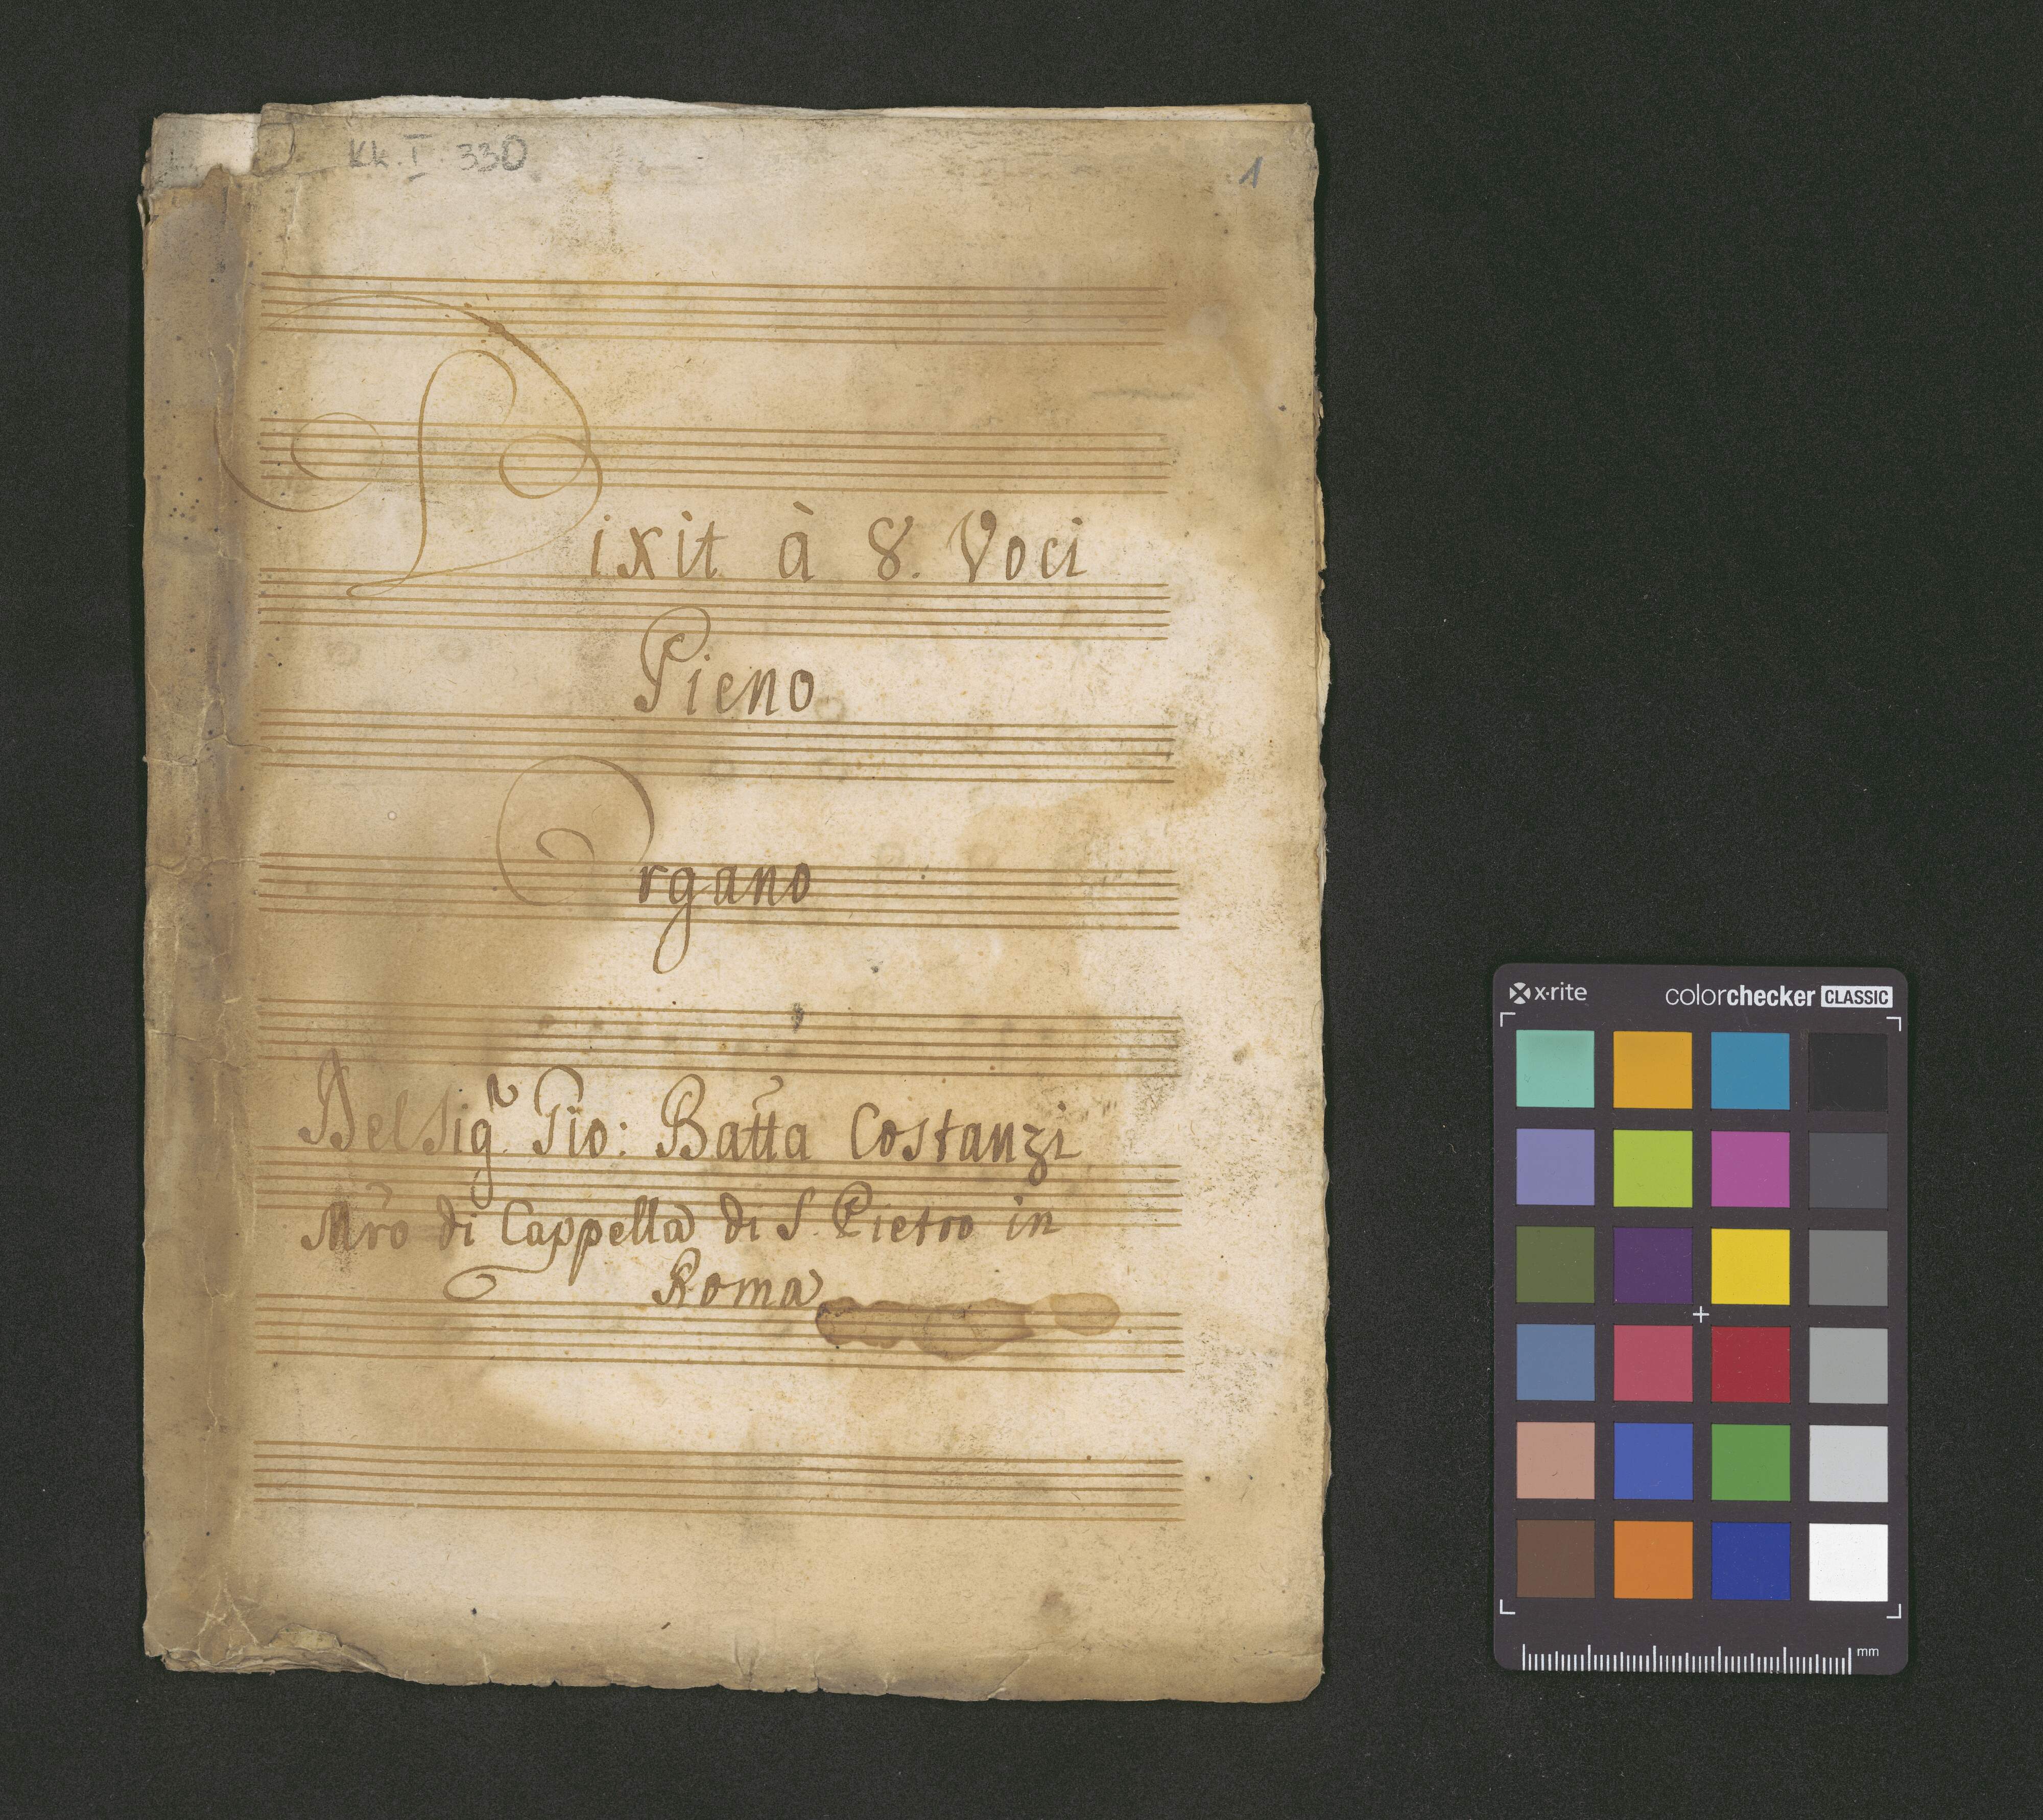 Kk. I. 330
1
Dixit à 8. Voci
Pieno
Organo
Del Sigr. Gio: Batta Costanzi
Mro di Cappella di S. Pietro in
Roma
x-rite
colorchecker CLASSIC
mm